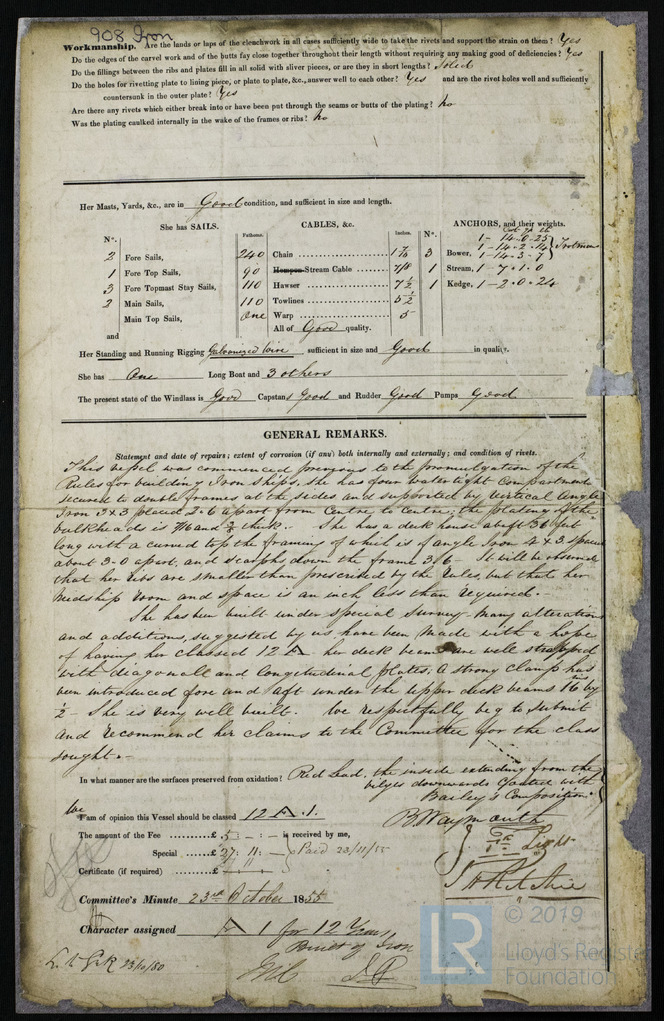 908 Iron
Workmanship. Are the lands or laps of the clenchwork in all cases sufficiently wide to take the rivets and support the strain on them? Yes
Do the edges of the carvel work and of the butts fay close together throughout their length without requiring any making good of deficiencies? Yes
Do the fillings between the ribs and plates fill in all solid with sliver pieces, or are they in short lengths? Solid
Do the holes for rivetting plate to lining piece, or plate to plate, &c., answer well to each other? Yes and are the rivet holes well and sufficiently
countersunk in the outer plate? Yes
Are there any rivets which either break into or have been put through the seams or butts of the plating? no
Was the plating caulked internally in the wake of the frames or ribs? no
Her Masts, Yards, &c., are in Good condition, and sufficient in size and length.
She has SAILS. CABLES, &c. ANCHORS, and their weights.
No. Fathoms. Inches. No.
2 Fore Sails, 240 Chain 3 Bower, 1 - 14.0.25
1 - 14.2.14
1 - 14.3.7 Trotman
1 Fore Top Sails, 90 Hempen Stream Cable 7/8 1 Stream, 1 - 7.1.0
3 Fore Topmast Stay Sails, 110 Hawser 7 1/2 1 Kedge, 1 - 2.0.24
2 Main Sails, 110 Towlines 5 1/2
Main Top Sails, One Warp 5
and All of Good quality.
Her Standing and Running Rigging Galvanized Wire sufficient in size and Good in quality.
She has One Long Boat and 3 others
The present state of the Windlass is Good Capstans Good and Rudder Good Pumps Good
GENERAL REMARKS.
Statement and date of repairs; extent of corrosion (if any) both internally and externally; and condition of rivets.
This vessel was commenced previous to the promulgation of the
Rules for building Iron Ships, she has four watertight Compartments
secured to double frames at the sides and supported by Vertical Angle
Iron 3x3 placed 2.6 apart from Centre to Centre; the plating of the
bulkheads is 7/16 and 3/8 thick. She has a deck house abaft 36 feet
long with a curved top the framing of which is of angle Iron 4x3 spaced
about 3-0 apart, and scarphs down the frame 3.6 - It will be observed
that her ribs are smaller than prescribed by the Rules, but that her
Midship room and space is an inch less than required.
She has been built under special survey - many alterations
and additions, suggested by us have been made with a hope
of having her classed 12 A her deck beams are well strapped
with diagonal and longitudinal plates; a strong clamp has
been introduced fore and aft under the upper deck beams 16 ins by
1/2 - She is very well built. We respectfully beg to submit
and recommend her claims to the Committee for the class
sought.-
In what manner are the surfaces preserved from oxidation? Red Lead, the inside extending from the
bilges downwards coated with
Bailey's Composition
We
I am of opinion this Vessel should be classed 12 A.1.
B Waymouth
The amount of the Fee £ 5 : - : - is received by me,
Special £ 27 : 11 : - Paid 23/11/55
Certificate (if required) £
J. H. Ritchie
Committee's Minute 23rd October 1855
Character assigned A 1 for 12 Years
Built of Iron
© 2019
LR Lloyd's Register
Foundation